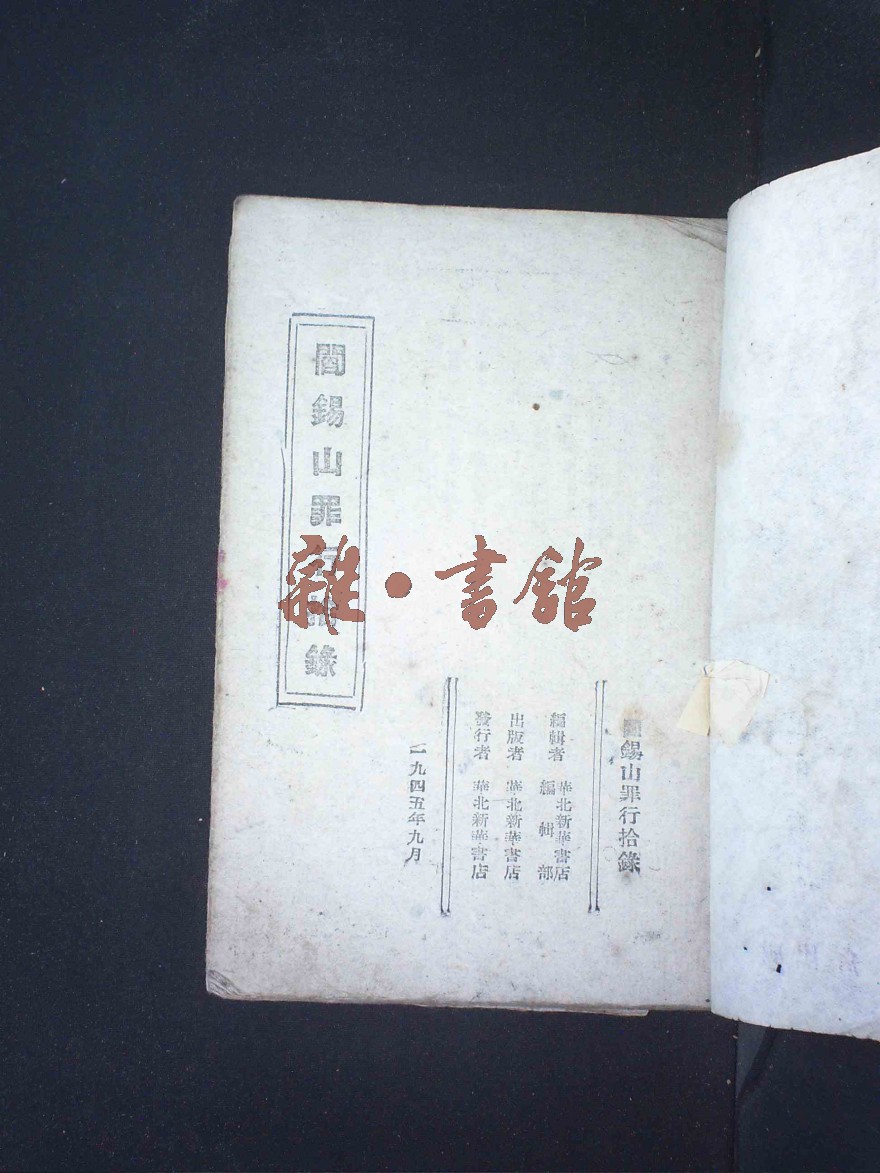 閻錫山罪行拾錄
編輯者 華北新華書店
編輯部
出版者 華北新華書店
發行者 華北新華書店
一九四五年九月
閻錫山罪行拾錄
雜·書館